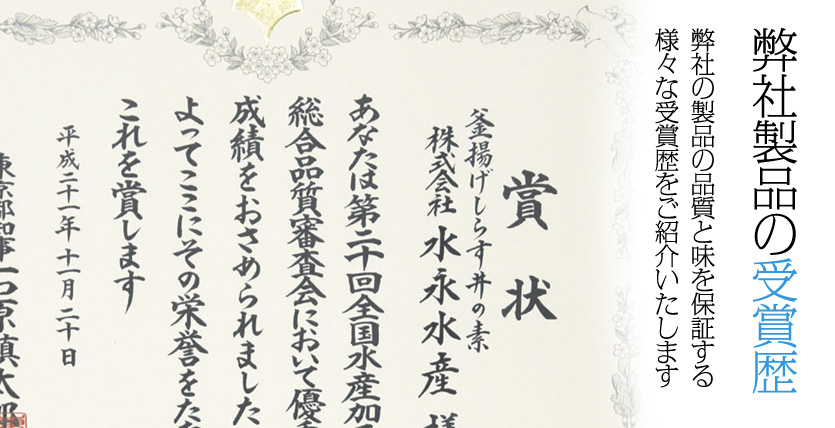 弊社製品の受賞歴
弊社の製品の品質と味を保証する
様々な受賞歴をご紹介いたします
賞状
釜揚げしらす丼の素
株式会社 水永水産 様
あなたは第二十回全国水産加
総合品質審査会において優
成績をおさめられました
よってここにその栄誉をた
これを賞します
平成二十一年十一月二十日
東京都知事 石原慎太郎